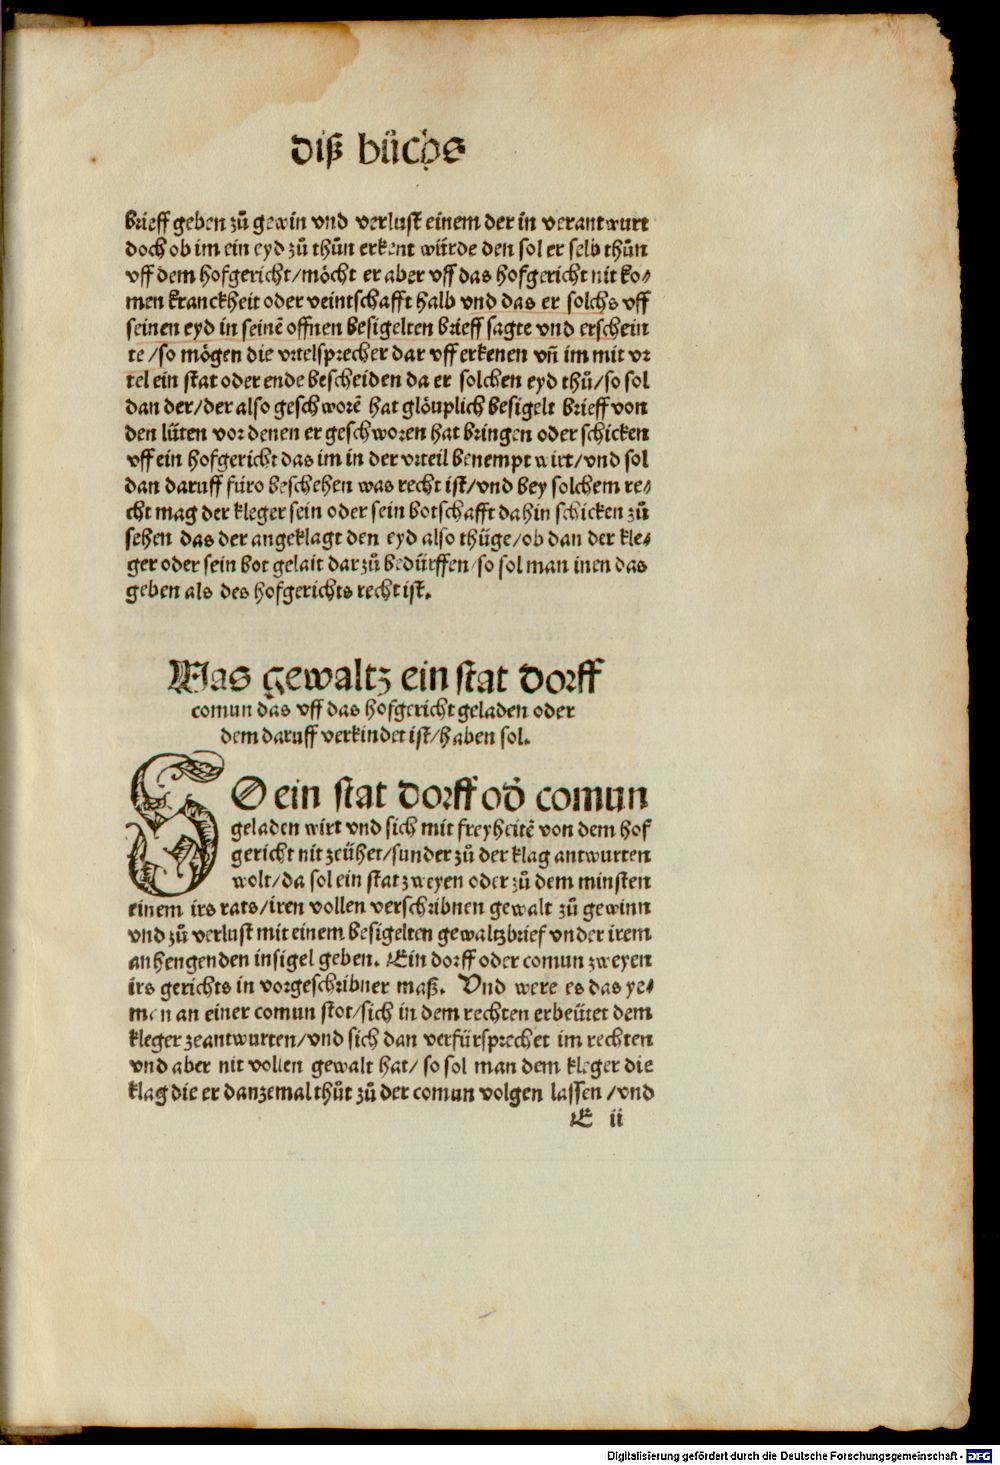 diß bůchs
brieff geben zů gewin vnd verlust einem der in verantwurt
doch ob im ein eyd zů thůn erkent würde den sol er selb thůn
vff dem hofgericht/möcht er aber vff das hofgericht nit ko⸗
men kranckheit oder veintschafft halb vnd das er solchs vff
seinen eyd in seinē offnen besigelten brieff sagte vnd erschein
te/so mögen die vrtelsprecher dar vff erkenen vn̄ im mit vr
tel ein stat oder ende bescheiden da er solchen eyd thů/so sol
dan der/der also geschworē hat glöuplich besigelt brieff von
den lüten vor denen er geschworen hat bringen oder schicken
vff ein hofgericht das im in der vrteil benempt wirt/vnd sol
dan daruff füro beschehen was recht ist/vnd bey solchem re⸗
cht mag der kleger sein oder sein botschafft dahin schicken zů
sehen das der angeklagt den eyd also thüge/ob dan der kle⸗
ger oder sein bot gelait dar zů bedürffen/so sol man inen das
geben als des hofgerichts recht ist.
Was gewaltz ein stat dorff
comun das vff das hofgericht geladen oder
dem daruff verkindet ist/haben sol.
SO ein stat dorff od̄ comun
geladen wirt vnd sich mit freyheitē von dem hof
gericht nit zeühet/sunder zů der klag antwurten
wolt/da sol ein stat zweyen oder zů dem minsten
einem irs rats/iren vollen verschribnen gewalt zů gewinn
vnd zů verlust mit einem besigelten gewaltzbrief vnder irem
anhengenden insigel geben. Ein dorff oder comun zweyen
irs gerichts in vorgeschribner maß. Vnd were es das ye⸗
men an einer comun stot/sich in dem rechten erbeütet dem
kleger zeantwurten/vnd sich dan verfürsprechet im rechten
vnd aber nit vollen gewalt hat/so sol man dem kleger die
klag die er danzemal thůt zů der comun volgen lassen/vnd
E ii
Digitalisierung gefördert durch die Deutsche Forschungsgemeinschaft - DFG